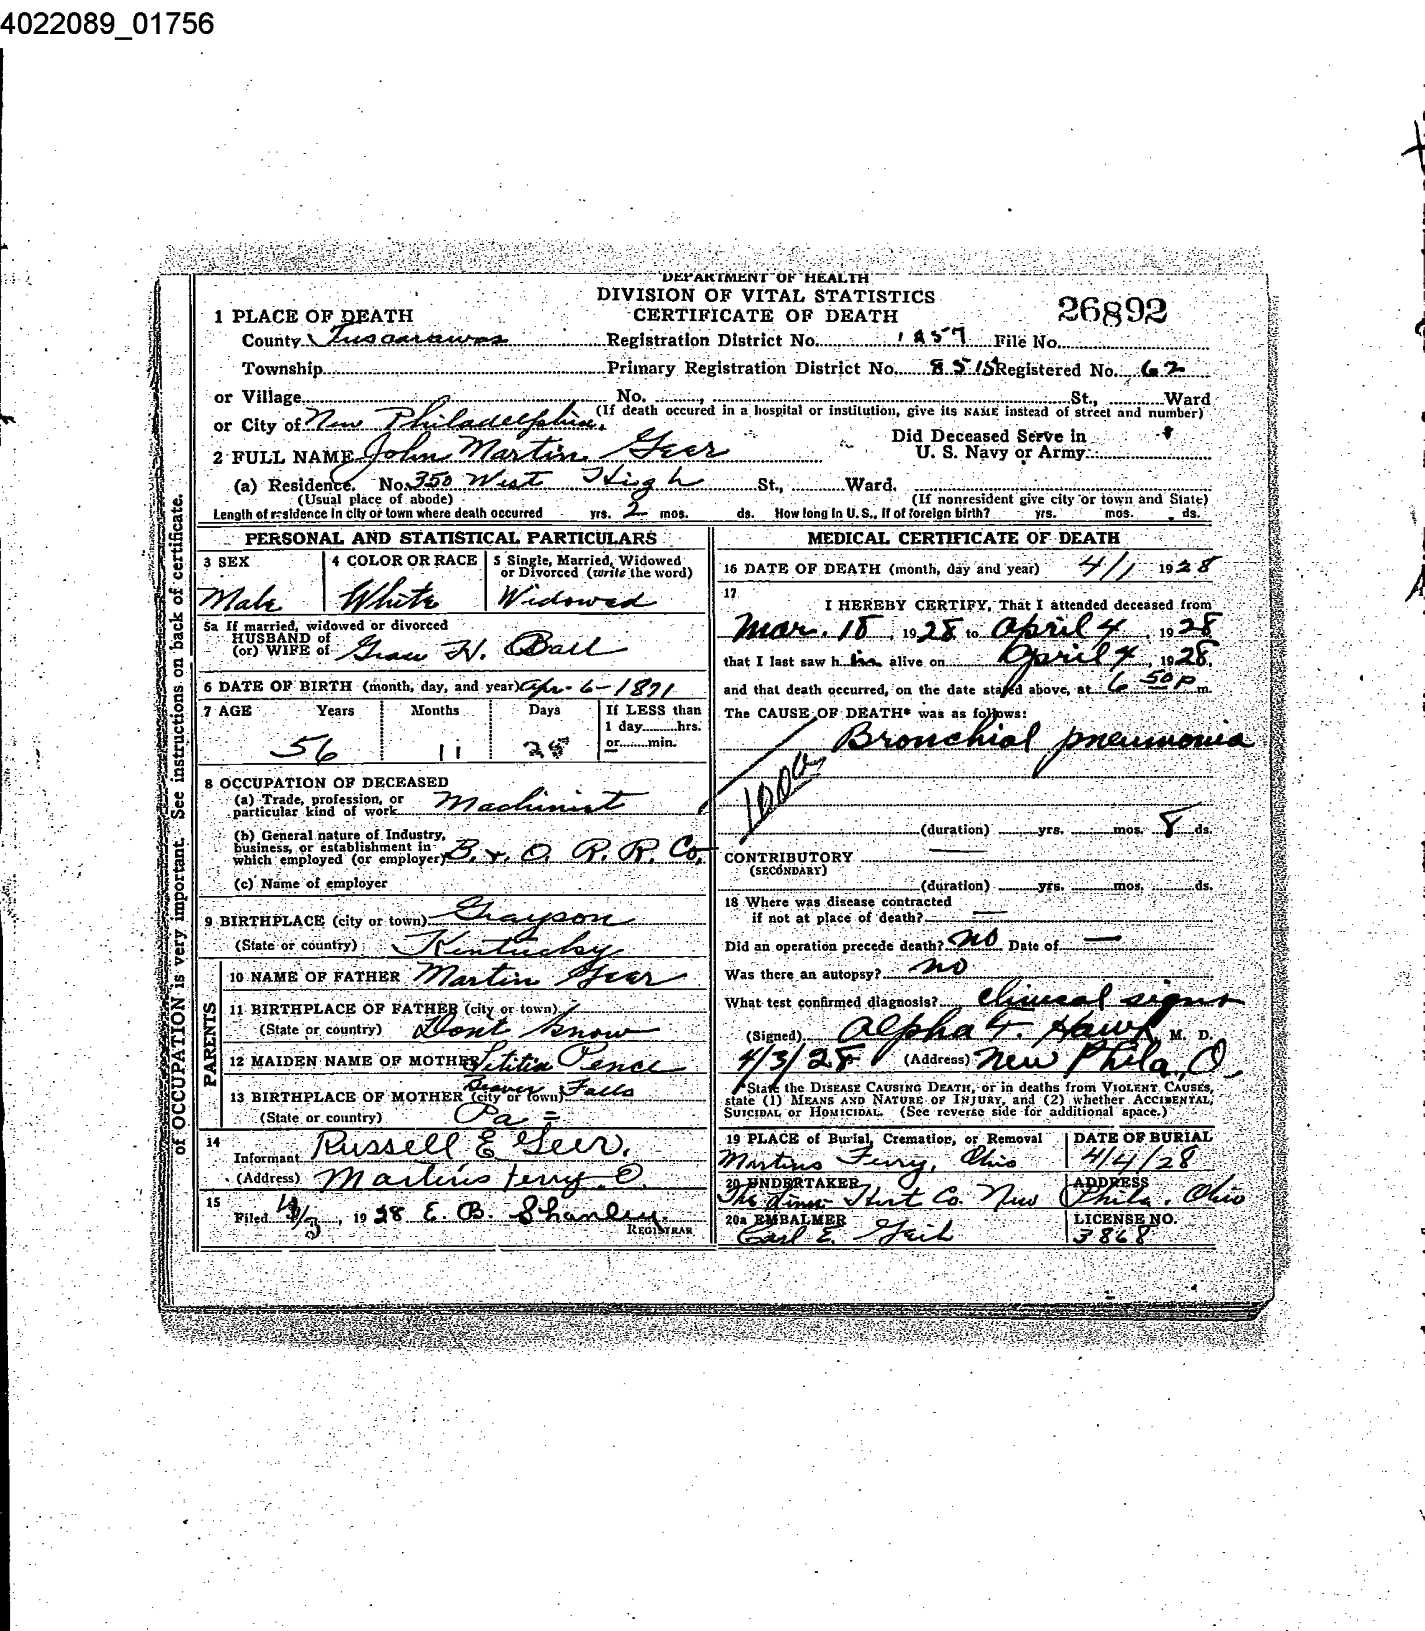 4022089_01756
DEPARTMENT OF HEALTH
DIVISION OF VITAL STATISTICS
CERTIFICATE OF DEATH
26892
1 PLACE OF DEATH
County Tuscarawas Registration District No. 1257 File No.
Township Primary Registration District No. 8515 Registered No. 62
or Village No. , St., Ward
(If death occured in a hospital or institution, give its NAME instead of street and number)
or City of New Philadelphia.
Did Deceased Serve in
U. S. Navy or Army
2 FULL NAME John Martin Geer
(a) Residence. No. 350 West High St., Ward.
(Usual place of abode) (If nonresident give city or town and State)
Length of residence in city or town where death occurred yrs. 2 mos. ds. How long in U. S., if of foreign birth? yrs. mos. ds.
of OCCUPATION is very important. See instructions on back of certificate.
PERSONAL AND STATISTICAL PARTICULARS
3 SEX 4 COLOR OR RACE 5 Single, Married, Widowed
or Divorced (write the word)
Male White Widowed
5a If married, widowed or divorced
HUSBAND of
(or) WIFE of H. Ball
6 DATE OF BIRTH (month, day, and year) Apr. 6-1871
7 AGE Years Months Days If LESS than
1 day hrs.
or min.
56 11 25
8 OCCUPATION OF DECEASED
(a) Trade, profession, or
particular kind of work Machinist
(b) General nature of Industry,
business, or establishment in
which employed (or employer) B. & O. R. R. Co.
(c) Name of employer
9 BIRTHPLACE (city or town) Grayson
(State or country) Kentucky
PARENTS
10 NAME OF FATHER Martin Geer
11 BIRTHPLACE OF FATHER (city or town)
(State or country) Dont know
12 MAIDEN NAME OF MOTHER Letitia Pence
13 BIRTHPLACE OF MOTHER (city or town) Beaver Falls
(State or country) Pa
14
Informant Russell E Geer.
(Address) Martins Ferry. O.
15
Filed 4/3, 1928 E. B. Shanley.
REGISTRAR
MEDICAL CERTIFICATE OF DEATH
16 DATE OF DEATH (month, day and year) 4/1 1928
17
I HEREBY CERTIFY, That I attended deceased from
Mar. 18, 1928 to April 4, 1928
that I last saw him alive on April 4, 1928,
and that death occurred, on the date stated above, at 6 50 P m.
The CAUSE OF DEATH* was as follows:
Bronchial pneumonia
100a
(duration) yrs. mos. 8 ds.
CONTRIBUTORY
(SECONDARY)
(duration) yrs. mos. ds.
18 Where was disease contracted
if not at place of death?
Did an operation precede death? No Date of —
Was there an autopsy? no
What test confirmed diagnosis? Clinical signs
(Signed) Alpha F. Hawk M. D.
4/3/28 (Address) New Phila, O.
*State the DISEASE CAUSING DEATH, or in deaths from VIOLENT CAUSES,
state (1) MEANS AND NATURE OF INJURY, and (2) whether ACCIDENTAL,
SUICIDAL or HOMICIDAL. (See reverse side for additional space.)
19 PLACE of Burial, Cremation, or Removal DATE OF BURIAL
Martins Ferry, Ohio 4/4/28
20 UNDERTAKER ADDRESS
The Co. New Phila. Ohio
20a EMBALMER LICENSE NO.
Carl E. 3868